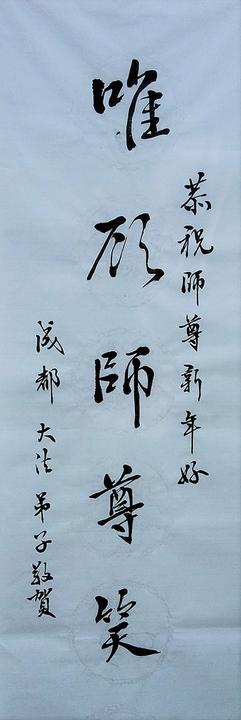 恭祝師尊新年好
唯願師尊笑
成都 大法弟子敬賀